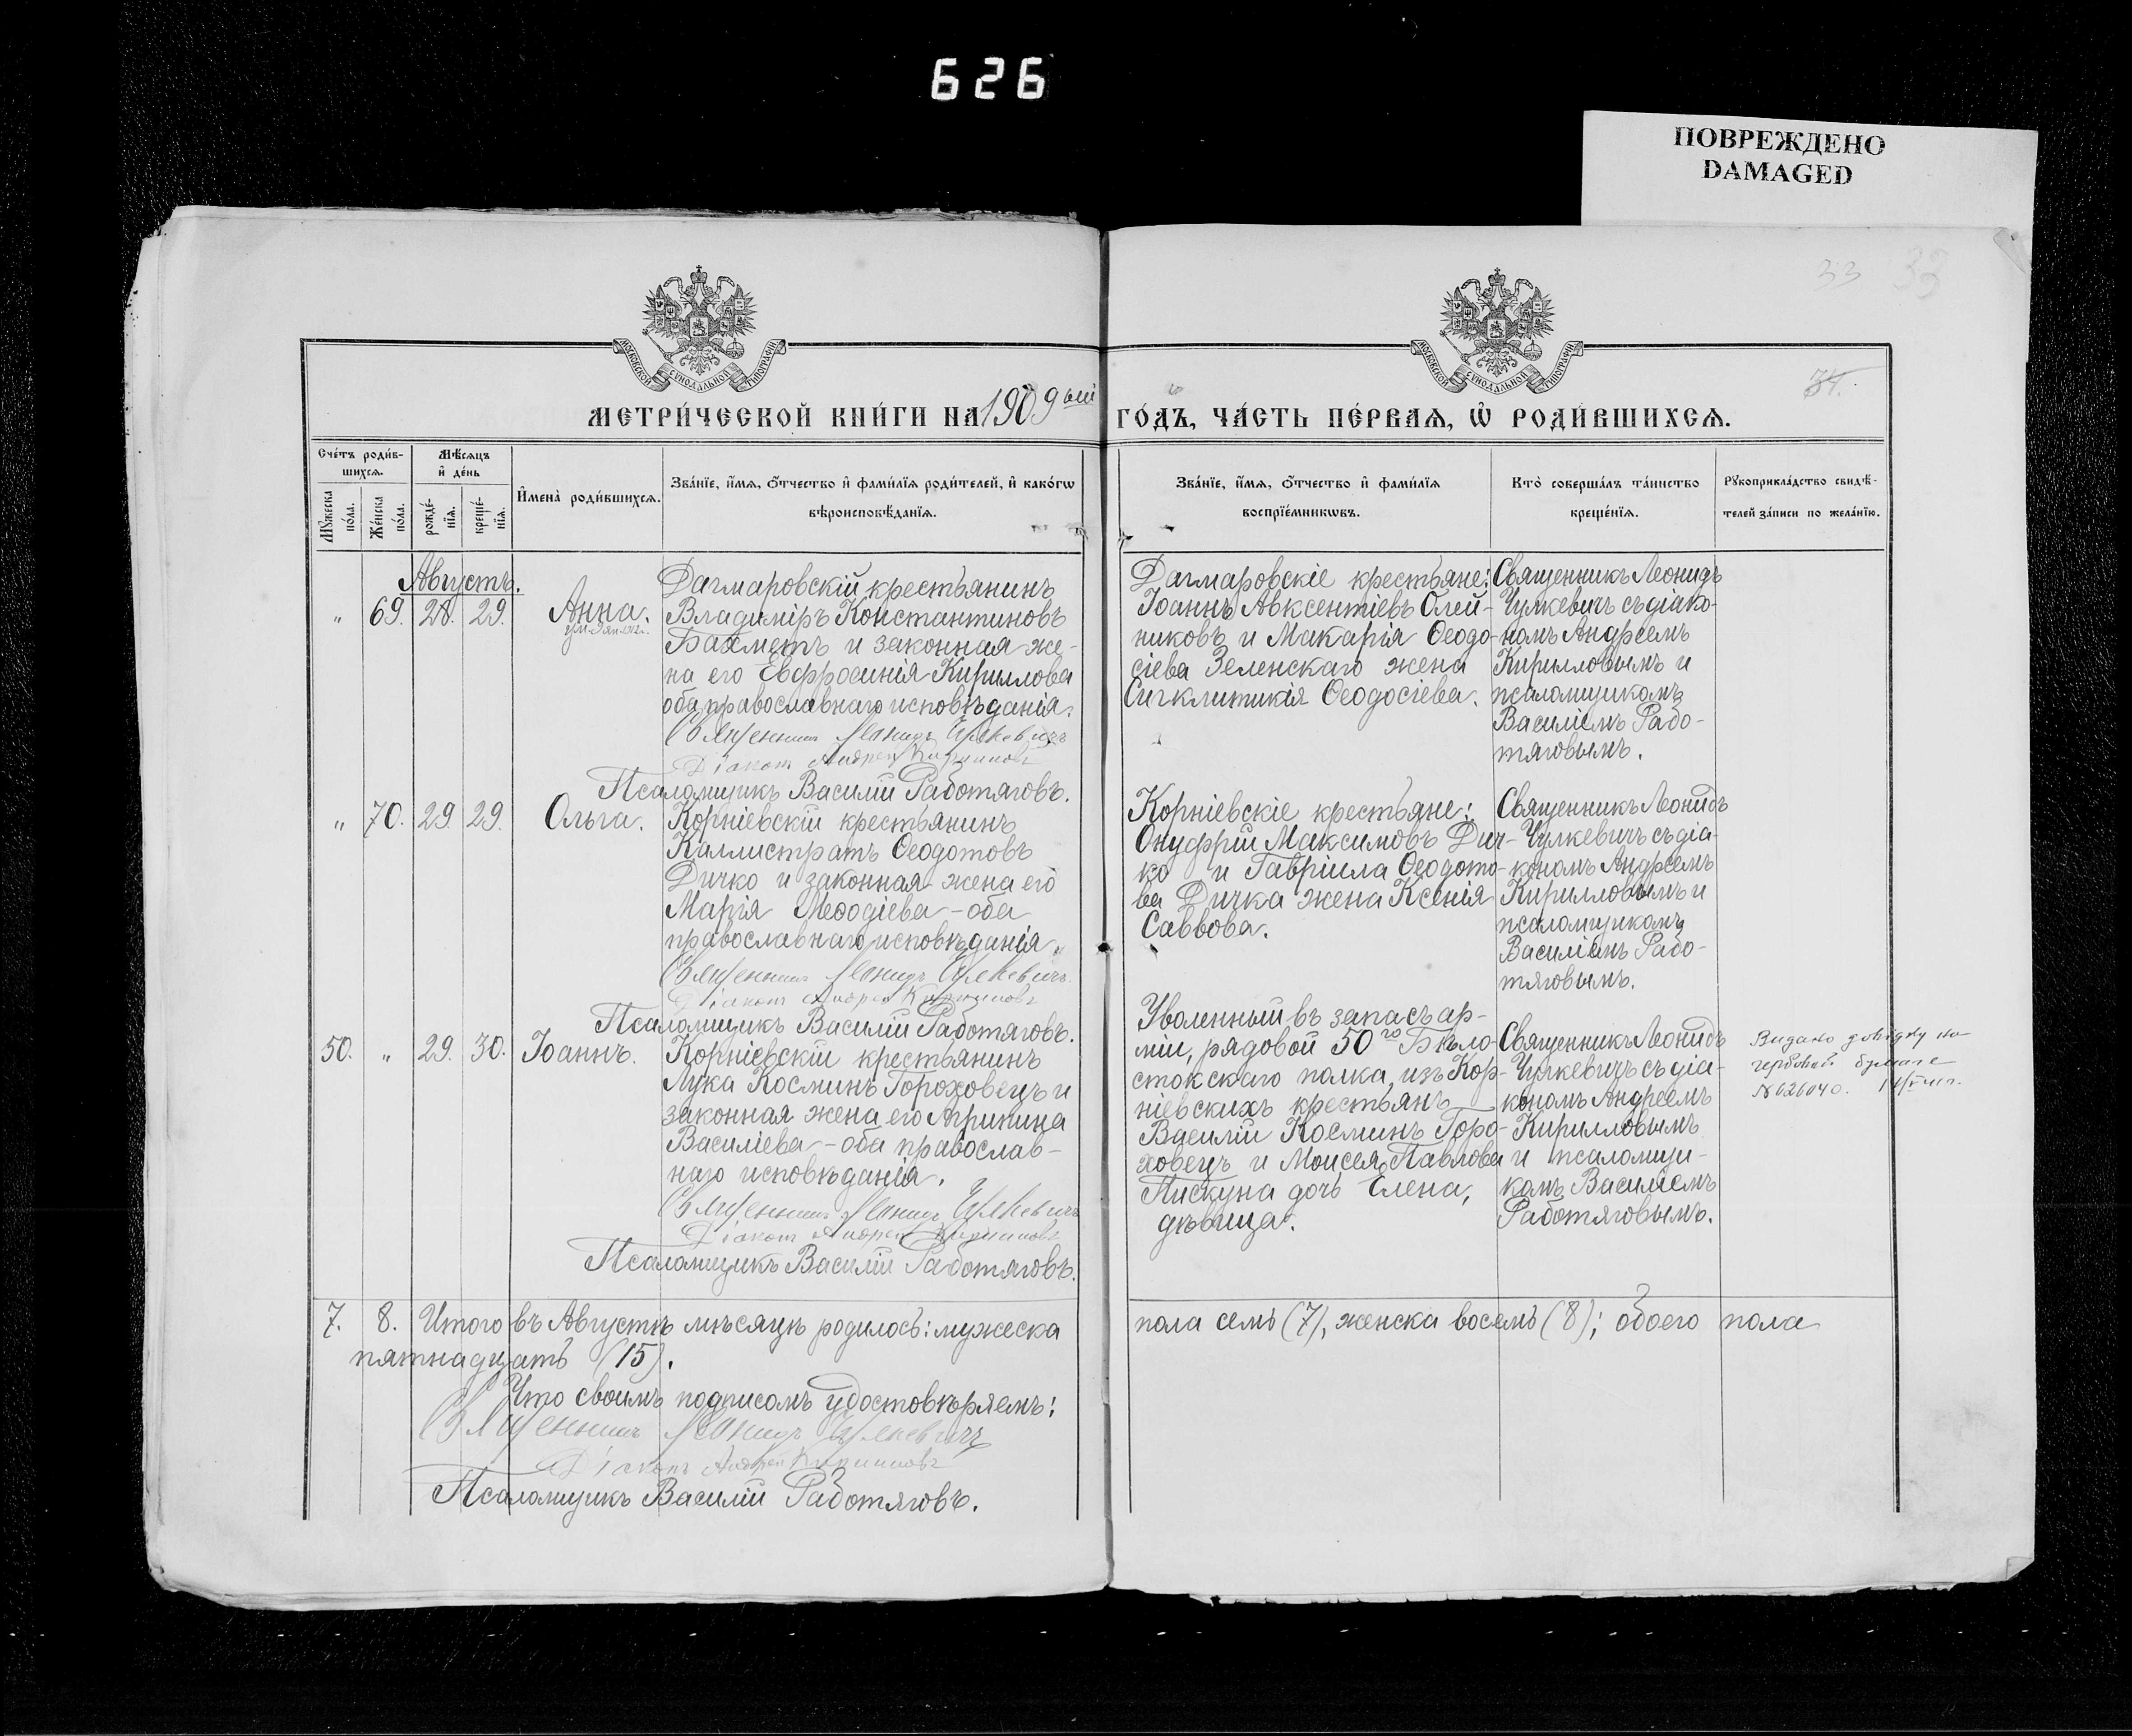 626
ПОВРЕЖДЕНО
DAMAGED
33
33
34.
МОСКОВСКОЙ СѴНОДАЛЬНОЙ ТИПОГРАФІИ
МОСКОВСКОЙ СѴНОДАЛЬНОЙ ТИПОГРАФІИ
МЕТРИ́ЧЕСКОЙ КНИ́ГИ НА 1909ый ГО́ДЪ, ЧА́СТЬ ПЕ́РВАѦ, Ѽ РОДИ́ВШИХСѦ.
Сче́тъ роди́в-
шихсѧ.
Мꙋжеска по́ла.
Же́нска по́ла.
Мѣ́сѧцъ
и҆ де́нь
рожде́-
нїѧ.
креще́-
нїѧ.
И҆мена̀ роди́вшихсѧ.
Зва́нїе, и҆́мѧ, ѻ҆́тчество и҆ фами́лїѧ роди́телей, и҆ како́гѡ
вѣроисповѣ́данїѧ.
Зва́нїе, и҆́мѧ, ѻ҆́тчество и҆ фами́лїѧ
воспрїе́мникѡвъ.
Кто̀ соверша́лъ та́инство
креще́нїѧ.
Рꙋкоприкла́дство свидѣ́-
телей за́писи по жела́нїю.
Августъ.
„ 69. 28. 29. Анна.
Дагмаровскій крестьянинъ
Владиміръ Константиновъ
Бахметъ и законная же-
на его Евфросинія Кириллова
оба православнаго исповѣданія.
Священникъ Леонидъ Чулкевичъ
Діаконъ Андрей Кирилловъ
Псаломщикъ Василій Работяговъ.
Дагмаровскіе крестьяне:
Іоаннъ Авксентіевъ Олей-
никовъ и Макарія Ѳеодо-
сіева Зеленскаго жена
Сигклитикія Ѳеодосіева.
Священникъ Леонидъ
Чулкевичъ съ діако-
номъ Андреемъ
Кирилловымъ и
псаломщикомъ
Василіемъ Рабо-
тяговымъ.
„ 70. 29. 29. Ольга.
Корніевскій крестьянинъ
Каллистратъ Ѳеодотовъ
Дичко и законная жена его
Марія Меѳодіева - оба
православнаго исповѣданія.
Священникъ Леонидъ Чулкевичъ
Діаконъ Андрей Кирилловъ
Псаломщикъ Василій Работяговъ.
Корніевскіе крестьяне:
Онуфрій Максимовъ Дич-
ко и Гавріила Ѳеодото-
ва Дичка жена Ксенія
Саввова.
Священникъ Леонидъ
Чулкевичъ съ діа-
кономъ Андреемъ
Кирилловымъ и
псаломщикомъ
Василіемъ Рабо-
тяговымъ.
50. „ 29. 30. Іоаннъ.
Корніевскій крестьянинъ
Лука Косминъ Гороховецъ и
законная жена его Агрипина
Василіева - оба православ-
наго исповѣданія.
Священникъ Леонидъ Чулкевичъ
Діаконъ Андрей Кирилловъ
Псаломщикъ Василій Работяговъ.
Уволенный въ запасъ ар-
міи, рядовой 50го Бѣло-
стокскаго полка, изъ Кор-
ніевскихъ крестьянъ
Василій Косминъ Горо-
ховецъ и Моисея Павлова
Пискуна дочь Елена,
дѣвица.
Священникъ Леонидъ
Чулкевичъ съ діа-
кономъ Андреемъ
Кирилловымъ
и псаломщи-
комъ Василіемъ
Работяговымъ.
Видано довідку на
гербовой бумаге
№ 626040.
7. 8. Итого въ Августѣ мѣсяцѣ родилось: мужеска пола семь (7), женска восемь (8); обоего пола
пятнадцать (15).
Что своимъ подписомъ удостовѣряемъ:
Священникъ Леонидъ Чулкевичъ
Діаконъ Андрей Кирилловъ
Псаломщикъ Василій Работяговъ.